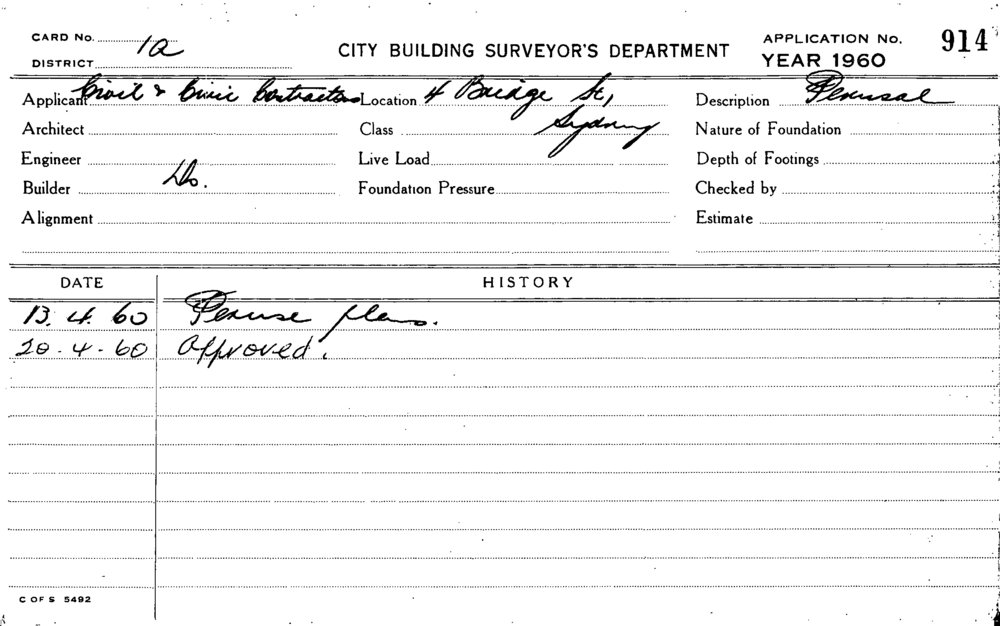 CARD No. 1a
CITY BUILDING SURVEYOR'S DEPARTMENT
APPLICATION No. 914
DISTRICT
YEAR 1960
Applicant Civil & Civic Contractors Location 4 Bridge St, Description Perusal
Architect Class Sydney Nature of Foundation
Engineer Live Load Depth of Footings
Builder Do. Foundation Pressure Checked by
Alignment Estimate
DATE HISTORY
13.4.60 Peruse plans.
20-4-60 Approved.
C OF S 5492